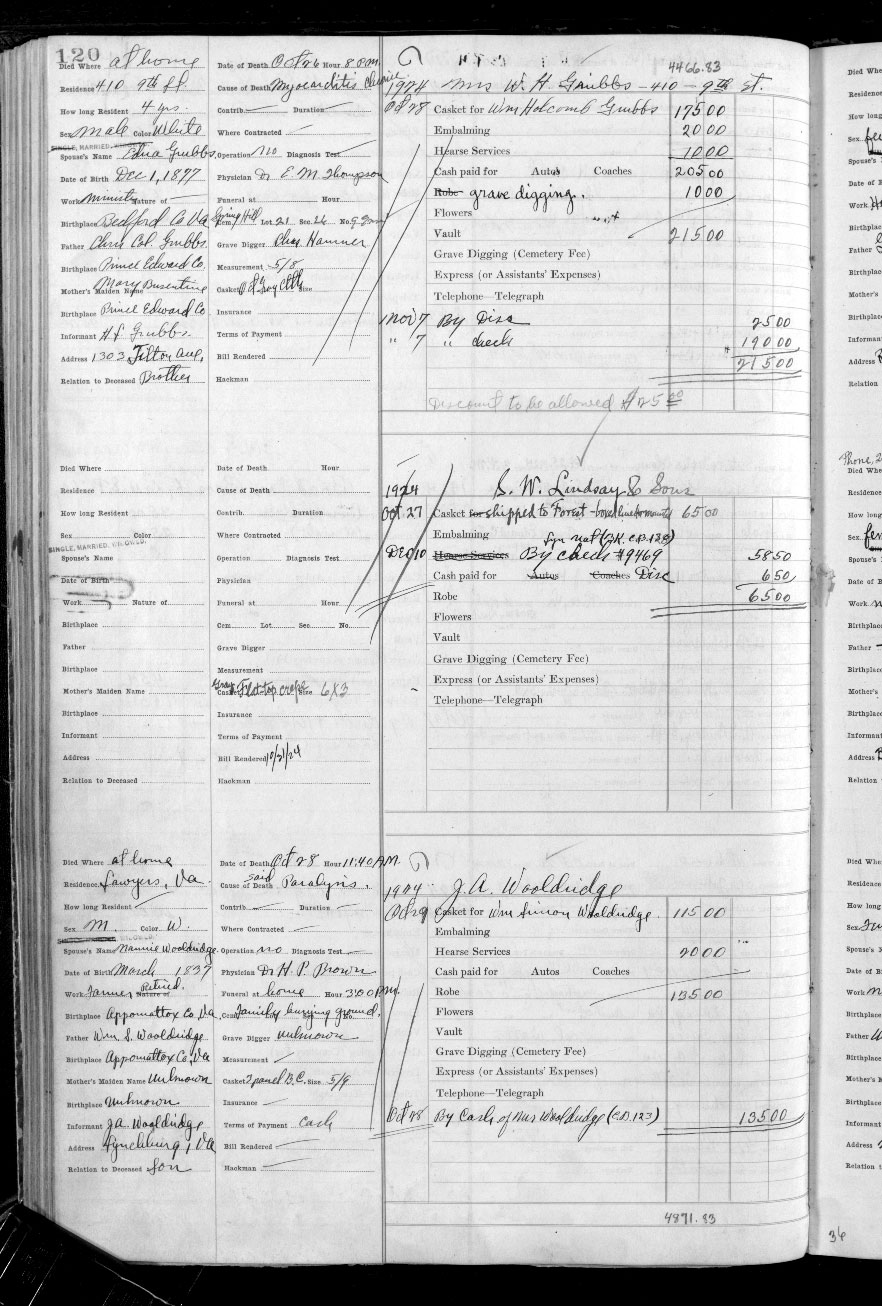 120
Died Where at home
Residence 410 9th St.
How long Resident 4 yrs.
Sex Male Color White
SINGLE, MARRIED, WIDOWED.
Spouse's Name Edna Grubbs
Date of Birth Dec 1, 1877
Work Minister Nature of
Birthplace Bedford Co Va
Father Chris Col. Grubbs.
Birthplace Prince Edward Co.
Mother's Maiden Name Mary
Birthplace Prince Edward Co
Informant H.f. Grubbs.
Address 1303 Tilton Ave.
Relation to Deceased Brother
Date of Death Oct 26 Hour 8 a.m.
Cause of Death Myocarditis Chronic
Contrib. Duration
Where Contracted
Operation no Diagnosis Test
Physician Dr E. M. Thompson
Funeral at Hour
Spring Hill
Cem. Lot 21 Sec. 26 No.
Grave Digger Chas. Hamner
Measurement 5/8
Casket Size
Insurance
Terms of Payment
Bill Rendered
Hackman
4466.83
1924 Mrs W. H. Grubbs - 410 - 9th St.
Oct 28 Casket for Wm Holcomb Grubbs 175 00
Embalming 20 00
Hearse Services 10 00
Cash paid for Autos Coaches 205 00
Robe grave digging. 10 00
Flowers
Vault 215 00
Grave Digging (Cemetery Fee)
Express (or Assistants' Expenses)
Telephone—Telegraph
Nov 7 By Disc 25 00
" 7 " check 190 00
215 00
Discount to be allowed $25.00
Died Where
Residence
How long Resident
Sex Color
SINGLE, MARRIED, WIDOWED.
Spouse's Name
Date of Birth
Work Nature of
Birthplace
Father
Birthplace
Mother's Maiden Name
Birthplace
Informant
Address
Relation to Deceased
Date of Death Hour
Cause of Death
Contrib. Duration
Where Contracted
Operation Diagnosis Test
Physician
Funeral at Hour
Cem. Lot Sec. No.
Grave Digger
Measurement
Gray
Casket Flat top crepe Size 6X3
Insurance
Terms of Payment
Bill Rendered 10/31/24
Hackman
1924 S. W. Lindsay & Sons
Oct 27 Casket for shipped to Forest 65 00
Embalming (C.B.128)
Dec 10 Hearse Services By check #9469 58 50
Cash paid for Autos Coaches Disc 6 50
Robe 65 00
Flowers
Vault
Grave Digging (Cemetery Fee)
Express (or Assistants' Expenses)
Telephone—Telegraph
Died Where at home
Residence Lawyers, Va.
How long Resident
Sex M. Color W.
Spouse's Name Nannie Wooldridge
Date of Birth March 1837
Work Farmer Nature of Retired.
Birthplace Appomattox Co, Va.
Father Wm S. Wooldridge
Birthplace Appomattox Co, Va
Mother's Maiden Name Unknown
Birthplace Unknown
Informant J.A. Wooldridge
Address Lynchburg, Va
Relation to Deceased Son
Date of Death Oct 28 Hour 11:40 A.M.
said
Cause of Death Paralysis.
Contrib. Duration
Where Contracted
Operation no Diagnosis Test
Physician Dr H. P. Brown
Funeral at home Hour 3:00 P.M.
Cem. Family burying ground.
Grave Digger unknown
Measurement
Casket 2 panel B.C. Size 5/9
Insurance
Terms of Payment Cash
Bill Rendered
Hackman
1924 J. A. Wooldridge
Oct 29 Casket for Wm Simon Wooldridge. 115 00
Embalming
Hearse Services 20 00
Cash paid for Autos Coaches
Robe 135 00
Flowers
Vault
Grave Digging (Cemetery Fee)
Express (or Assistants' Expenses)
Telephone—Telegraph
Oct 28 By Cash of Mrs Wooldridge (C.B.123) 135 00
4871.83
36